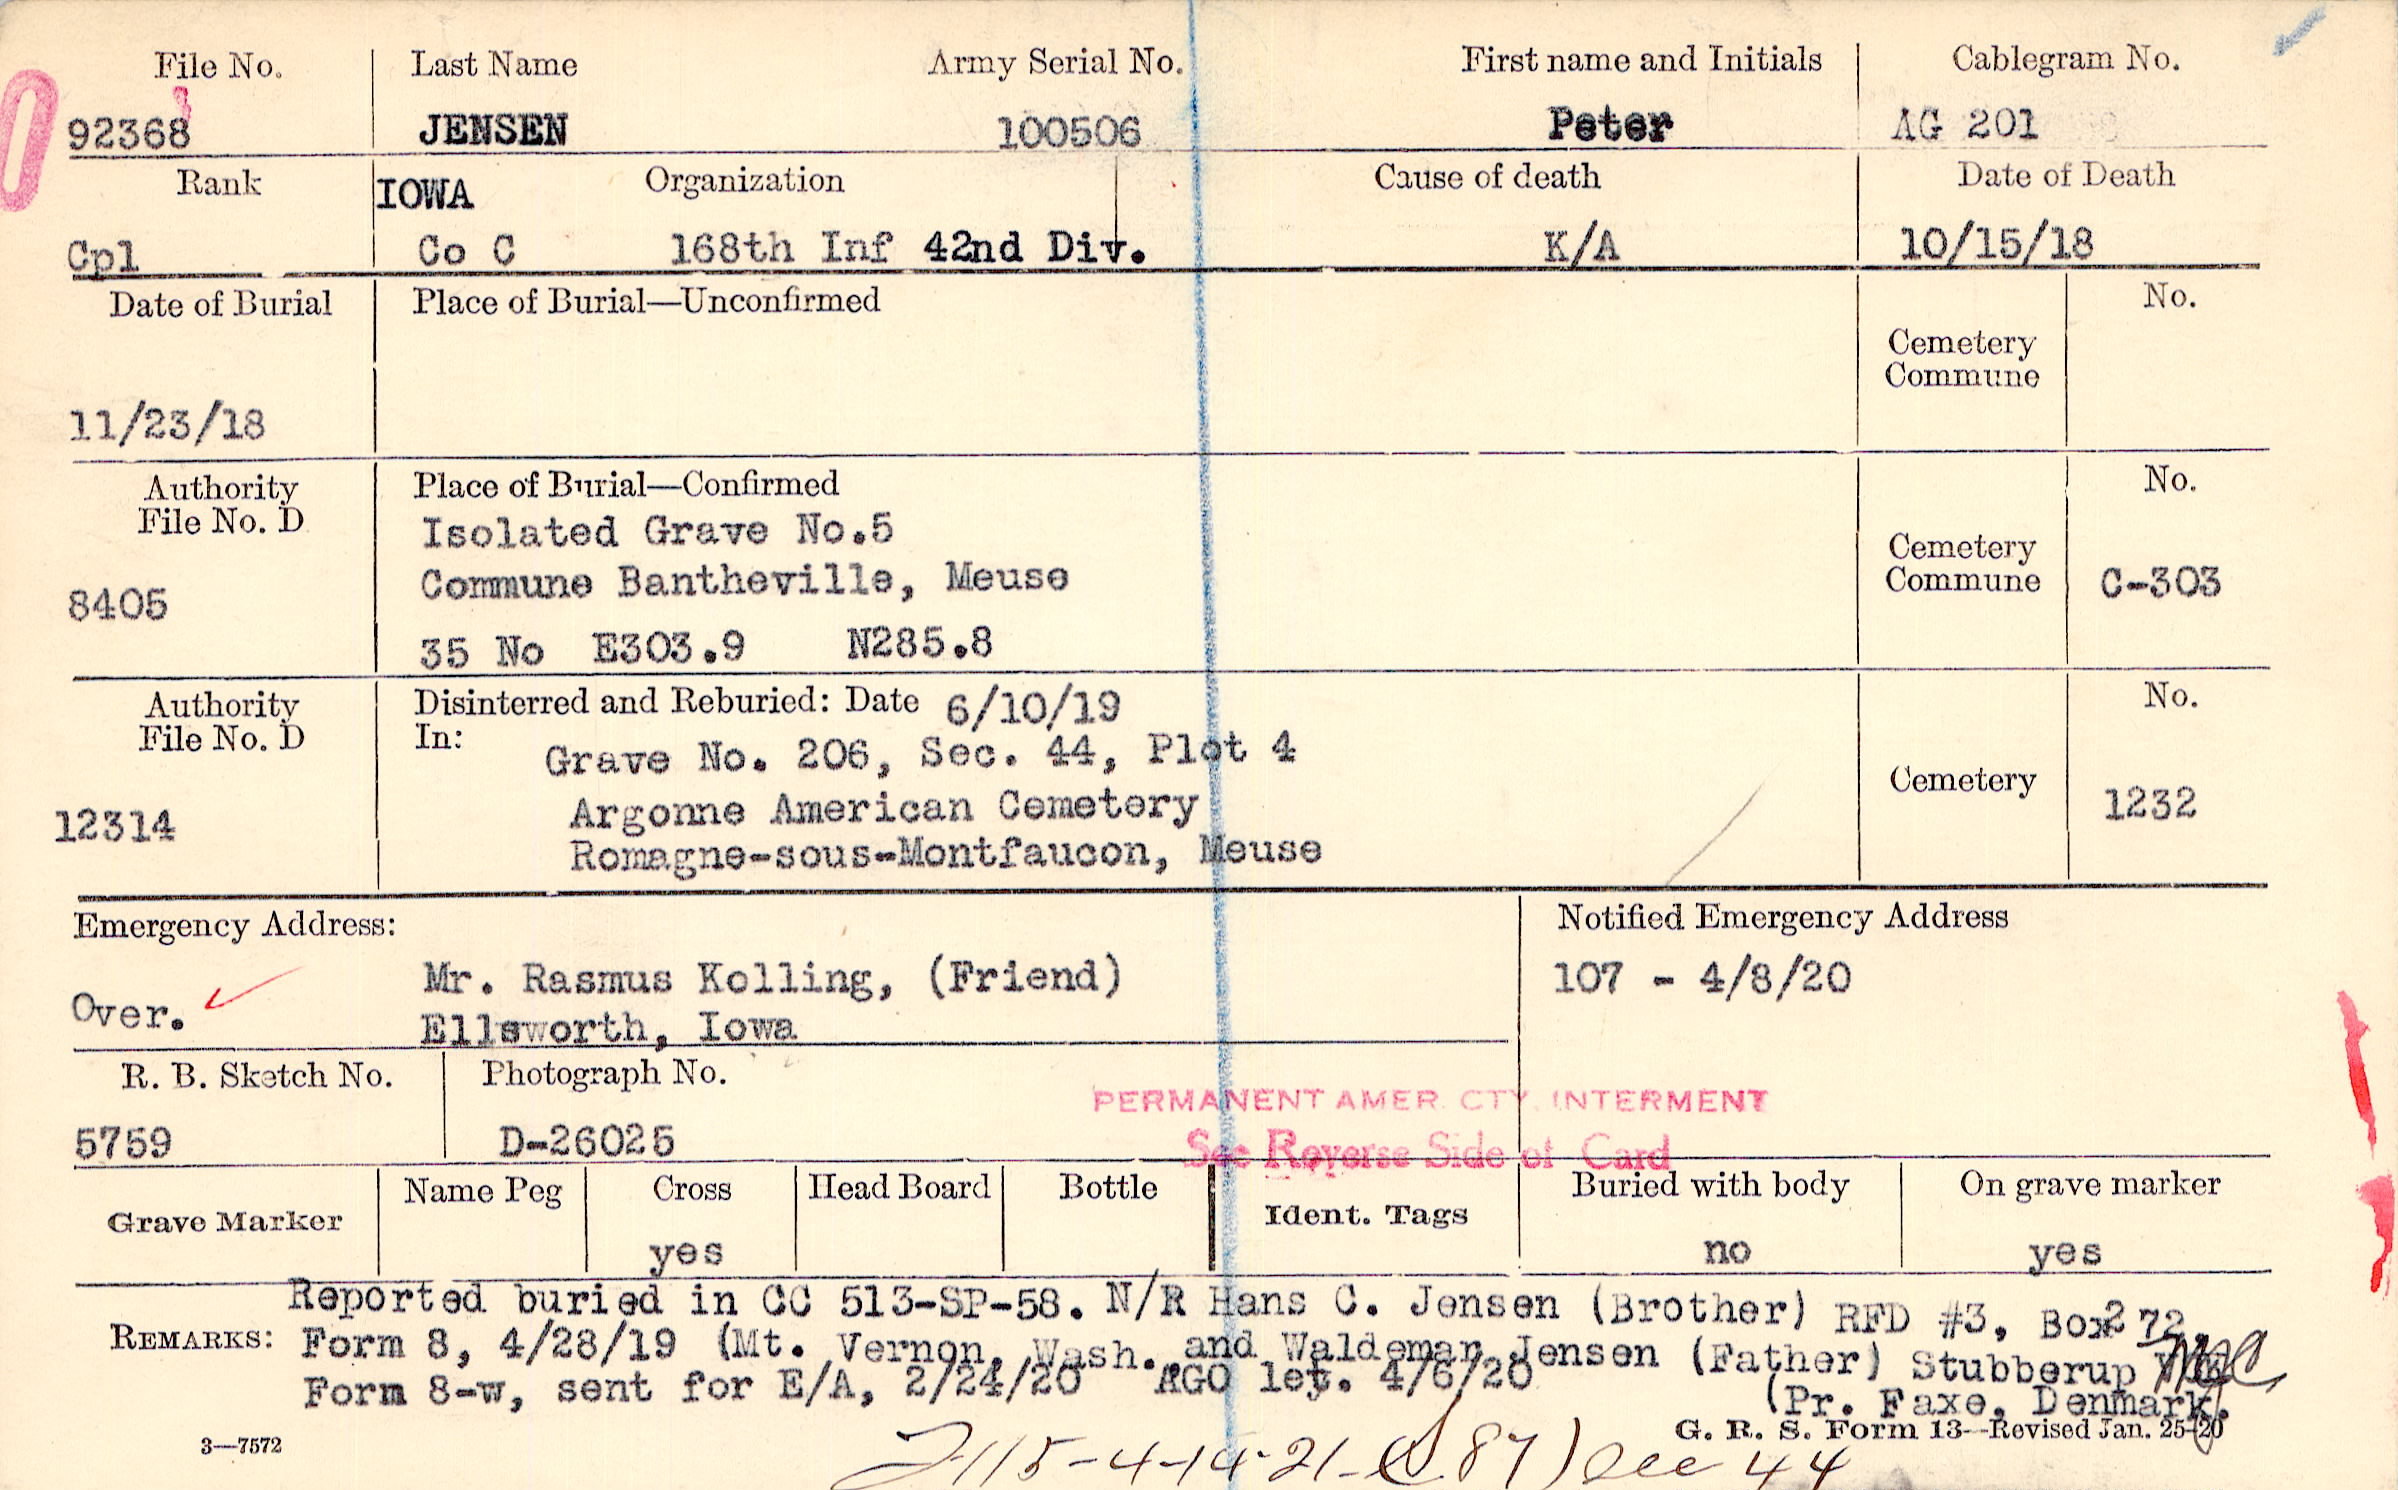 File No. Last Name Army Serial No. First name and Initials Cablegram No.
92368 JENSEN 100506 Peter AG 201
Rank IOWA Organization Cause of death Date of Death
Cpl Co C 168th Inf 42nd Div. K/A 10/15/18
Date of Burial Place of Burial—Unconfirmed No.
Cemetery
Commune
11/23/18
Authority Place of Burial—Confirmed No.
File No. D Isolated Grave No.5
Cemetery
8405 Commune Bantheville, Meuse Commune C-303
35 No E303.9 N285.8
Authority Disinterred and Reburied: Date 6/10/19 No.
File No. D In: Grave No. 206, Sec. 44, Plot 4
Cemetery
12314 Argonne American Cemetery 1232
Romagne-sous-Montfaucon, Meuse
Emergency Address: Notified Emergency Address
Over. Mr. Rasmus Kolling, (Friend) 107 - 4/8/20
Ellsworth, Iowa
R. B. Sketch No. Photograph No.
PERMANENT AMER. CTY. INTERMENT
5759 D-26025 See Reverse Side of Card
Grave Marker Name Peg Cross Head Board Bottle Ident. Tags Buried with body On grave marker
yes no yes
Reported buried in CC 513-SP-58. N/R Hans C. Jensen (Brother) RFD #3, Box 272,
REMARKS: Form 8, 4/28/19 (Mt. Vernon, Wash. and Waldemar Jensen (Father) Stubberup
Form 8-w, sent for E/A, 2/24/20 AGO let. 4/6/20 (Pr. Faxe, Denmark.
3—7572 G. R. S. Form 13—Revised Jan. 25-20
115-4-14-21- 87) Sec 44